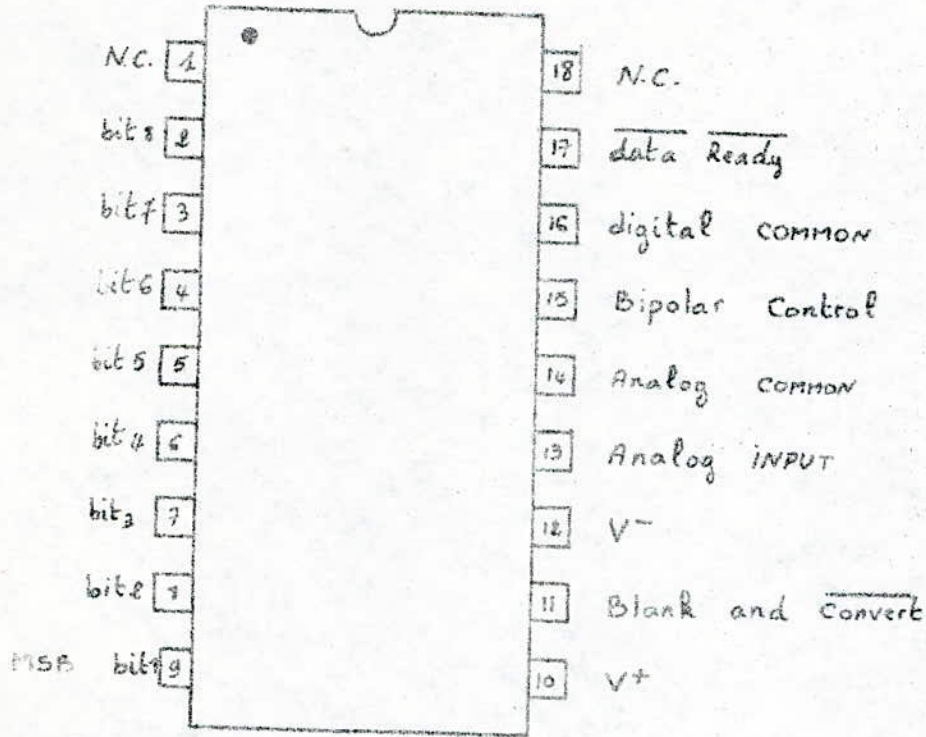 N.C. 1
bit 8 2
bit 7 3
bit 6 4
bit 5 5
bit 4 6
bit 3 7
bit 2 8
MSB bit 1 9
18 N.C.
17 d̅a̅t̅a̅ R̅e̅a̅d̅y̅
16 digital COMMON
15 Bipolar Control
14 Analog COMMON
13 Analog INPUT
12 V⁻
11 Blank and C̅o̅n̅v̅e̅r̅t̅
10 V⁺